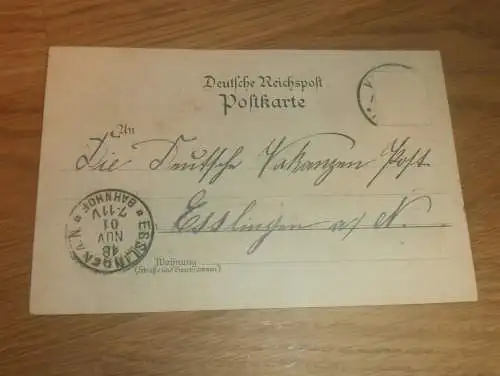 Deutsche Reichspost
Postkarte
An
Die Deutsche Vakanzen Post
Esslingen a/N.
Wohnung
(Straße und Hausnummer)
ESSLINGEN A.N.
* BAHNHOF *
18
NOV
01
7-11V